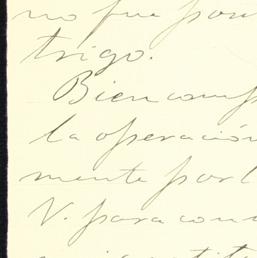 no fue por
trigo.
Bien comp
la operación
mente por l
V. para con